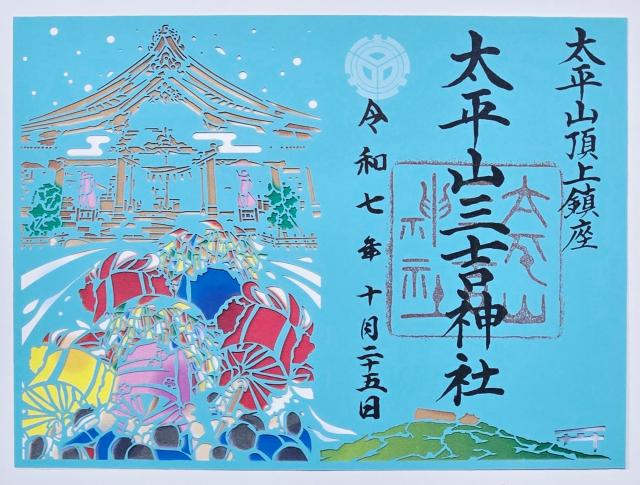 太平山頂上鎮座
太平山三吉神社
令和七年十月二十五日